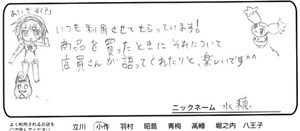 いつも利用させてもらっています!
商品を買ったときにそれについて
店員さんが語ってくれたりと、楽しいです^^
ニックネーム 水穂
よく利用されるお店を
立川 小作 羽村 昭島 青梅 高幡 堀之内 八王子